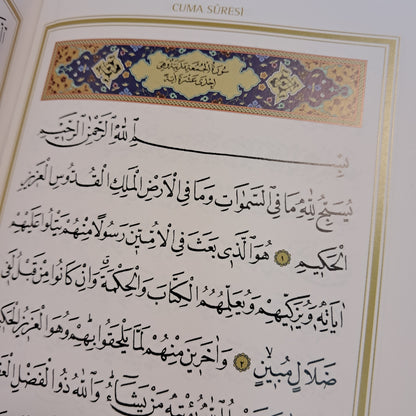 CUMA SÛRESİ
سُورَةُ الْجُمُعَةِ مَدَنِيَّةٌ وَهِيَ
اِحْدٰى عَشْرَةَ اٰيَةً
بِسْمِ اللّٰهِ الرَّحْمٰنِ الرَّحِيمِ
يُسَبِّحُ لِلّٰهِ مَا فِي السَّمٰوَاتِ وَمَا فِي الْاَرْضِ الْمَلِكِ الْقُدُّوسِ الْعَزِيزِ
الْحَكِيمِ ١ هُوَ الَّذِي بَعَثَ فِي الْاُمِّيّٖنَ رَسُولًا مِنْهُمْ يَتْلُوا عَلَيْهِمْ
اٰيَاتِهٖ وَيُزَكّٖيهِمْ وَيُعَلِّمُهُمُ الْكِتَابَ وَالْحِكْمَةَ وَاِنْ كَانُوا مِنْ قَبْلُ لَفٖي
ضَلَالٍ مُبٖينٍ ٢ وَاٰخَرٖينَ مِنْهُمْ لَمَّا يَلْحَقُوا بِهِمْ وَهُوَ الْعَزٖيزُ
يُؤْتٖيهِ مَنْ يَشَاءُ وَاللّٰهُ ذُو الْفَضْلِ